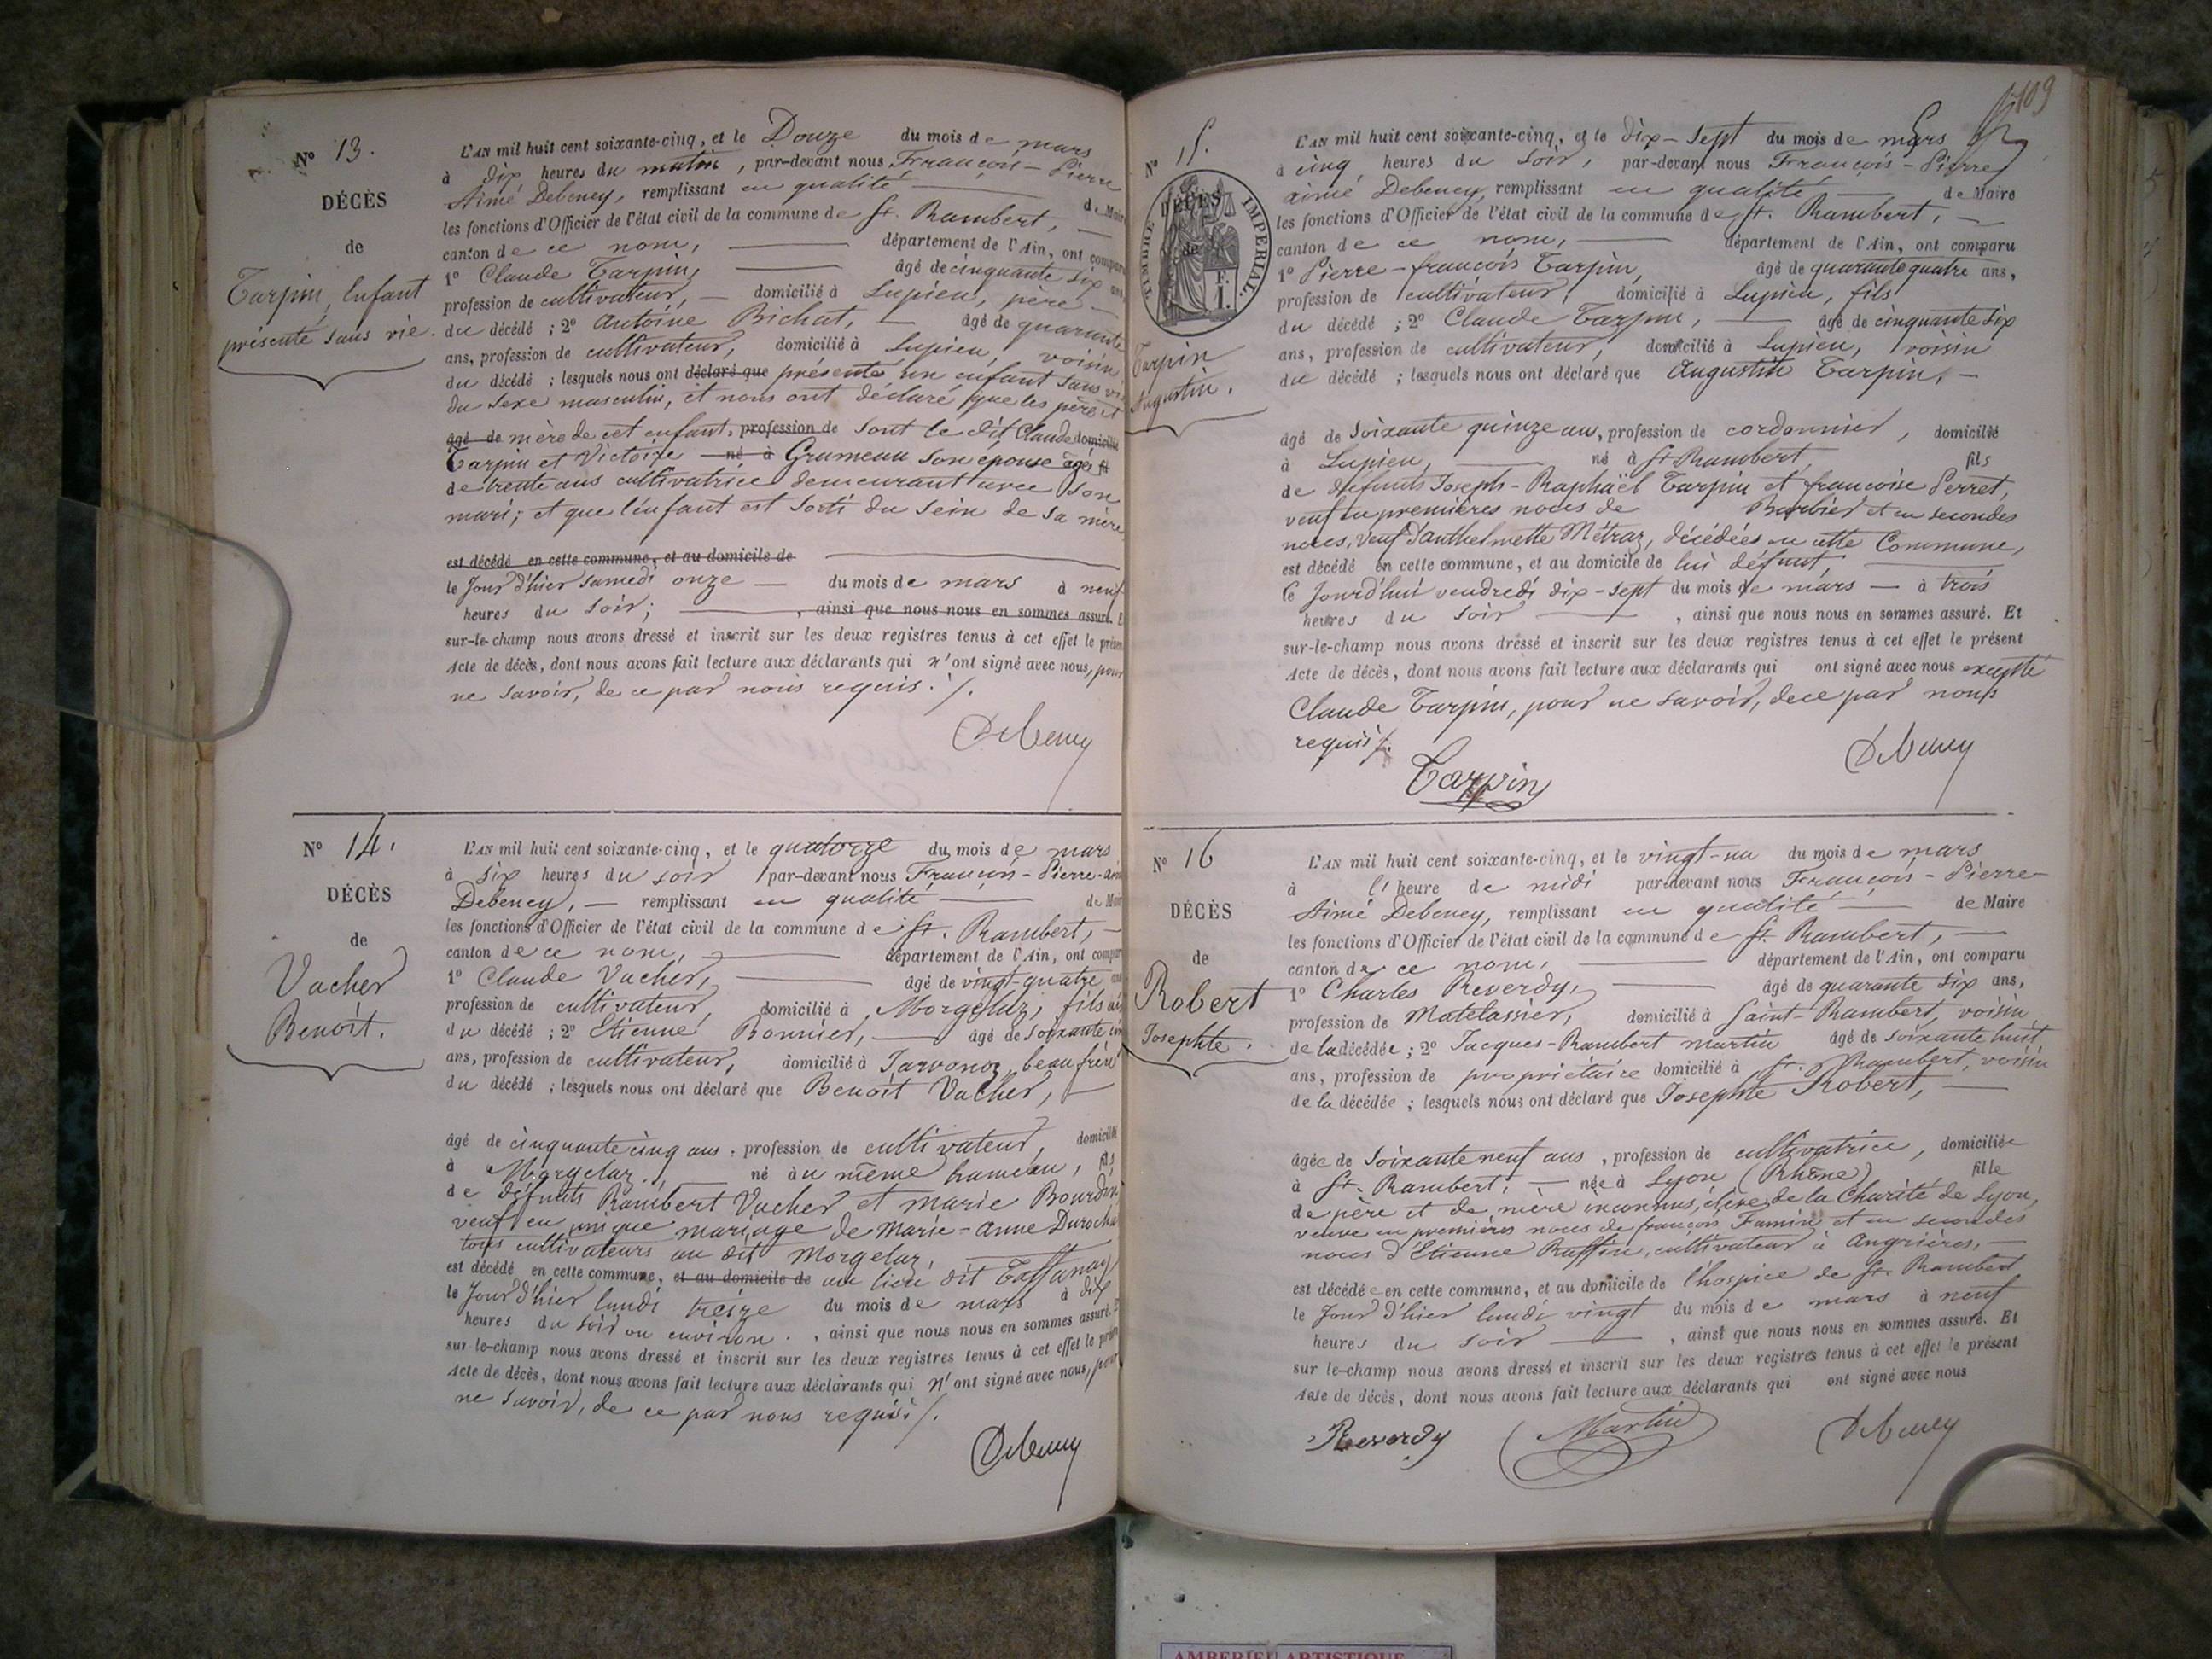 N° 13.
DÉCÈS
de
Tarpin, Enfant
présenté sans vie.
L'AN mil huit cent soixante-cinq, et le Douze du mois de mars
à dix heures du matin, par-devant nous François-Pierre
Aimé Debeney, remplissant en qualité de Maire
les fonctions d'Officier de l'état civil de la commune de St. Rambert,
canton de ce nom, département de l'Ain, ont comparu
1° Claude Tarpin, âgé de cinquante six ans,
profession de cultivateur, domicilié à Lupieu, père
du décédé ; 2° Antoine Bichat, âgé de quarante
ans, profession de cultivateur, domicilié à Lupieu, voisin
du décédé ; lesquels nous ont déclaré que présenté un enfant sans vie
du sexe masculin, et nous ont déclaré que les père et
âgé de mère de cet enfant, profession de sont le dit Claude domicilié
Tarpin et Victoire né à Grumeau son épouse âgée fil
de trente ans cultivatrice demeurant avec son
mari; et que l'enfant est sorti du sein de sa mère
est décédé en cette commune, et au domicile de
le jour d'hier samedi onze du mois de mars à neuf
heures du soir; , ainsi que nous nous en sommes assuré. Et
sur-le-champ nous avons dressé et inscrit sur les deux registres tenus à cet effet le présent
Acte de décès, dont nous avons fait lecture aux déclarants qui n'ont signé avec nous, pour
ne savoir, de ce par nous requis ./.
Debeney
N° 14.
DÉCÈS
de
Vacher
Benoît.
L'AN mil huit cent soixante-cinq, et le quatorze du mois de mars
à six heures du soir par-devant nous François-Pierre-aimé
Debeney, remplissant en qualité de Maire
les fonctions d'Officier de l'état civil de la commune de St. Rambert,
canton de ce nom, département de l'Ain, ont comparu
1° Claude Vacher, âgé de vingt-quatre ans
profession de cultivateur, domicilié à Morgelaz, fils
du décédé ; 2° Etienne Bonnier, âgé de soixante
ans, profession de cultivateur, domicilié à Javornoz, beau frère
du décédé ; lesquels nous ont déclaré que Benoît Vacher,
âgé de cinquante cinq ans, profession de cultivateur, domicilié
à Morgelaz, né au même hameau, fils
de défunts Rambert Vacher et Marie Bourdin
veuf en unique mariage de Marie-Anne Durochat
tous cultivateurs au dit Morgelaz,
est décédé en cette commune, et au domicile de au lieu dit
le jour d'hier lundi treize du mois de mars à dix
heures du soir ou environ. , ainsi que nous nous en sommes assuré. Et
sur-le-champ nous avons dressé et inscrit sur les deux registres tenus à cet effet le présent
Acte de décès, dont nous avons fait lecture aux déclarants qui n'ont signé avec nous, pour
ne savoir, de ce par nous requis ./.
Debeney
109
N° 15.
TIMBRE IMPÉRIAL
DÉCÈS
de
Tarpin
Augustin.
L'AN mil huit cent soixante-cinq, et le dix-sept du mois de mars
à cinq heures du soir, par-devant nous François-Pierre
aimé Debeney, remplissant en qualité de Maire
les fonctions d'Officier de l'état civil de la commune de St. Rambert,
canton de ce nom, département de l'Ain, ont comparu
1° Pierre-françois Tarpin, âgé de quarante quatre ans,
profession de cultivateur, domicilié à Lupieu, fils
du décédé ; 2° Claude Tarpin, âgé de cinquante six
ans, profession de cultivateur, domicilié à Lupieu, voisin
du décédé ; lesquels nous ont déclaré que Augustin Tarpin,
âgé de soixante quinze ans, profession de cordonnier, domicilié
à Lupieu, né à St Rambert fils
de défunts Joseph-Raphaël Tarpin et françoise Perret,
veuf en premières noces de Barbier et en secondes
noces, veuf d'Anthelmette Métraz, décédées en cette Commune,
est décédé en cette commune, et au domicile de lui défunt
le jourd'hui vendredi dix-sept du mois de mars à trois
heures du soir , ainsi que nous nous en sommes assuré. Et
sur-le-champ nous avons dressé et inscrit sur les deux registres tenus à cet effet le présent
Acte de décès, dont nous avons fait lecture aux déclarants qui ont signé avec nous excepté
Claude Tarpin, pour ne savoir, de ce par nous
requis ./.
Tarpin
Debeney
N° 16
DÉCÈS
de
Robert
Josephte.
L'AN mil huit cent soixante-cinq, et le vingt-un du mois de mars
à l'heure de midi par-devant nous François-Pierre
Aimé Debeney, remplissant en qualité de Maire
les fonctions d'Officier de l'état civil de la commune de St. Rambert,
canton de ce nom, département de l'Ain, ont comparu
1° Charles Reverdy, âgé de quarante six ans,
profession de Matelassier, domicilié à Saint-Rambert, voisin
de la décédée ; 2° Jacques-Rambert Martin âgé de soixante huit
ans, profession de propriétaire domicilié à St. Rambert, voisin
de la décédée ; lesquels nous ont déclaré que Josephte Robert,
âgée de soixante neuf ans, profession de cultivatrice, domiciliée
à St. Rambert, née à Lyon (Rhône) fille
de père et de mère inconnus, élève de la Charité de Lyon,
veuve en premières noces de françois Famin, et en secondes
noces d'Etienne Ruffin, cultivateur à Angrières,
est décédée en cette commune, et au domicile de l'hospice de St. Rambert
le jour d'hier lundi vingt du mois de mars à neuf
heures du soir , ainsi que nous nous en sommes assuré. Et
sur le-champ nous avons dressé et inscrit sur les deux registres tenus à cet effet le présent
Acte de décès, dont nous avons fait lecture aux déclarants qui ont signé avec nous
Reverdy Martin Debeney
AMBERIEU ARTISTIQUE